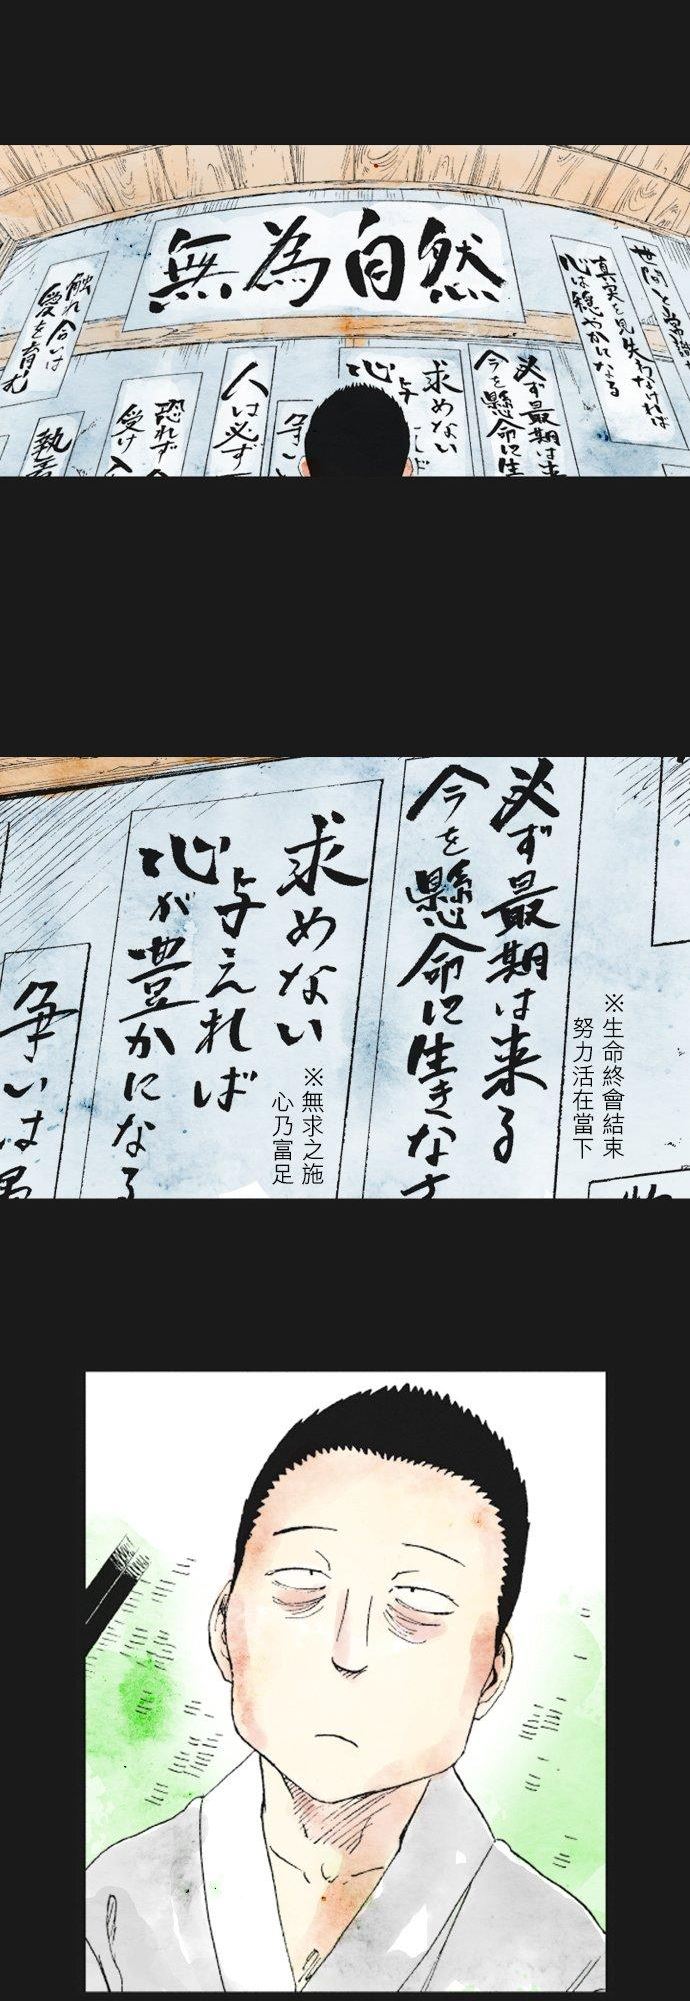 無為自然
世間と常識
真実を見失わなければ
心は穏やかになる
必ず最期は来
今を懸命に生
求めない
心
与
争い
人は必ず
恐れず
受け入
触れ合いは
愛を育む
執着
必ず最期は来る
今を懸命に生きなさ
※生命終會結束
努力活在當下
求めない
心
与えれば
心が豊かになる
※無求之施
心乃富足
争いは